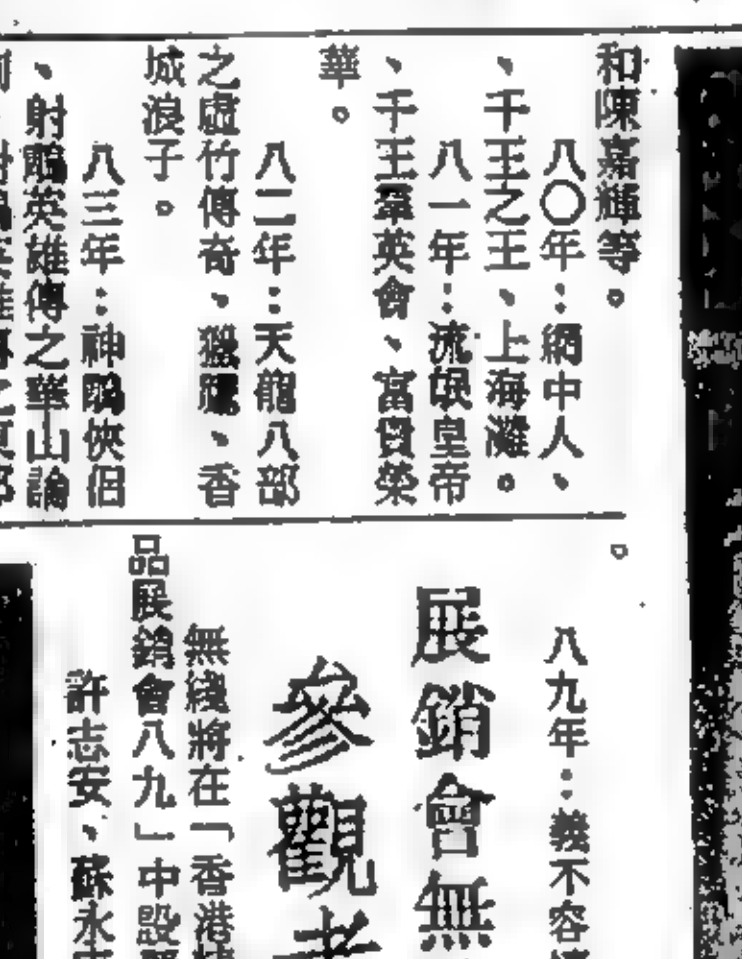 和陳嘉輝等。
八〇年：網中人、
、千王之王、上海灘。
八一年：流氓皇帝
、千王羣英會、富貴榮
華。
八二年：天龍八部
之虛竹傳奇、獵鷹、香
城浪子。
八三年：神鵰俠侶
、射鵰英雄傳之華山論
。
八九年：義不容
展銷會無
參觀者
無綫將在「香港
品展銷會八九」中設
許志安、蘇永